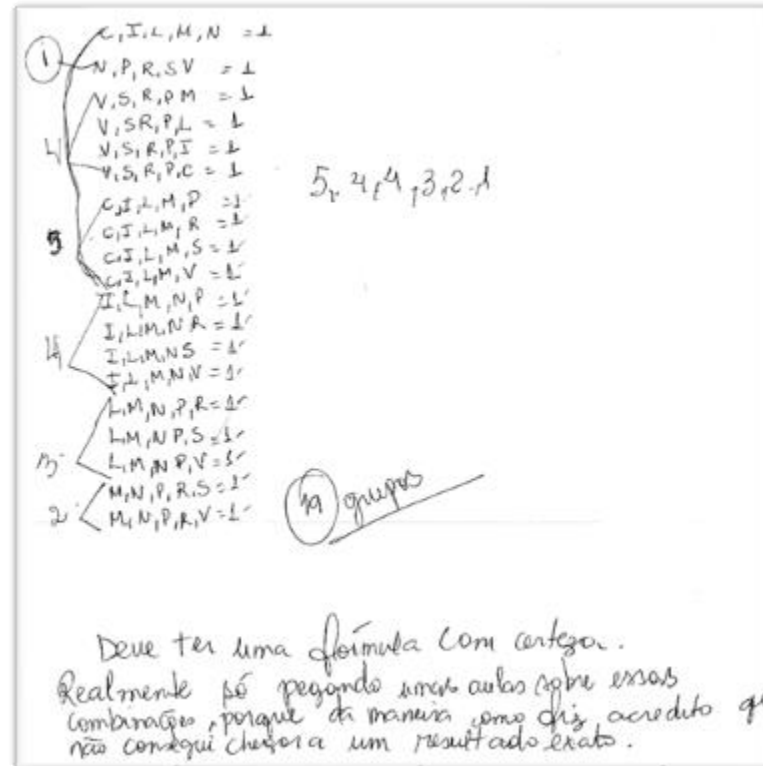 C, I, L, M, N = 1
1 N, P, R, S V = 1
V, S, R, P M = 1
V, S R, P, L = 1
4 V, S, R, P, I = 1
V, S, R, P, C = 1
5, 4, 4, 3, 2, 1
C, I, L, M, P = 1
C, I, L, M, R = 1
5 C, I, L, M, S = 1
C, I, L, M, V = 1
I, L, M, N, P = 1
I, L, M, N R = 1
4 I, L, M, N S = 1
I, L, M, N, V = 1
L, M, N, P, R = 1
L, M, N P, S = 1
3 L, M, N P, V = 1
M, N, P, R, S = 1
2 M, N, P, R, V = 1
19 grupos
Deve ter uma fórmula com certeza.
Realmente só pegando umas aulas sobre essas
combinações, porque da maneira como fiz, acredito q
não consegui chegar a um resultado exato.